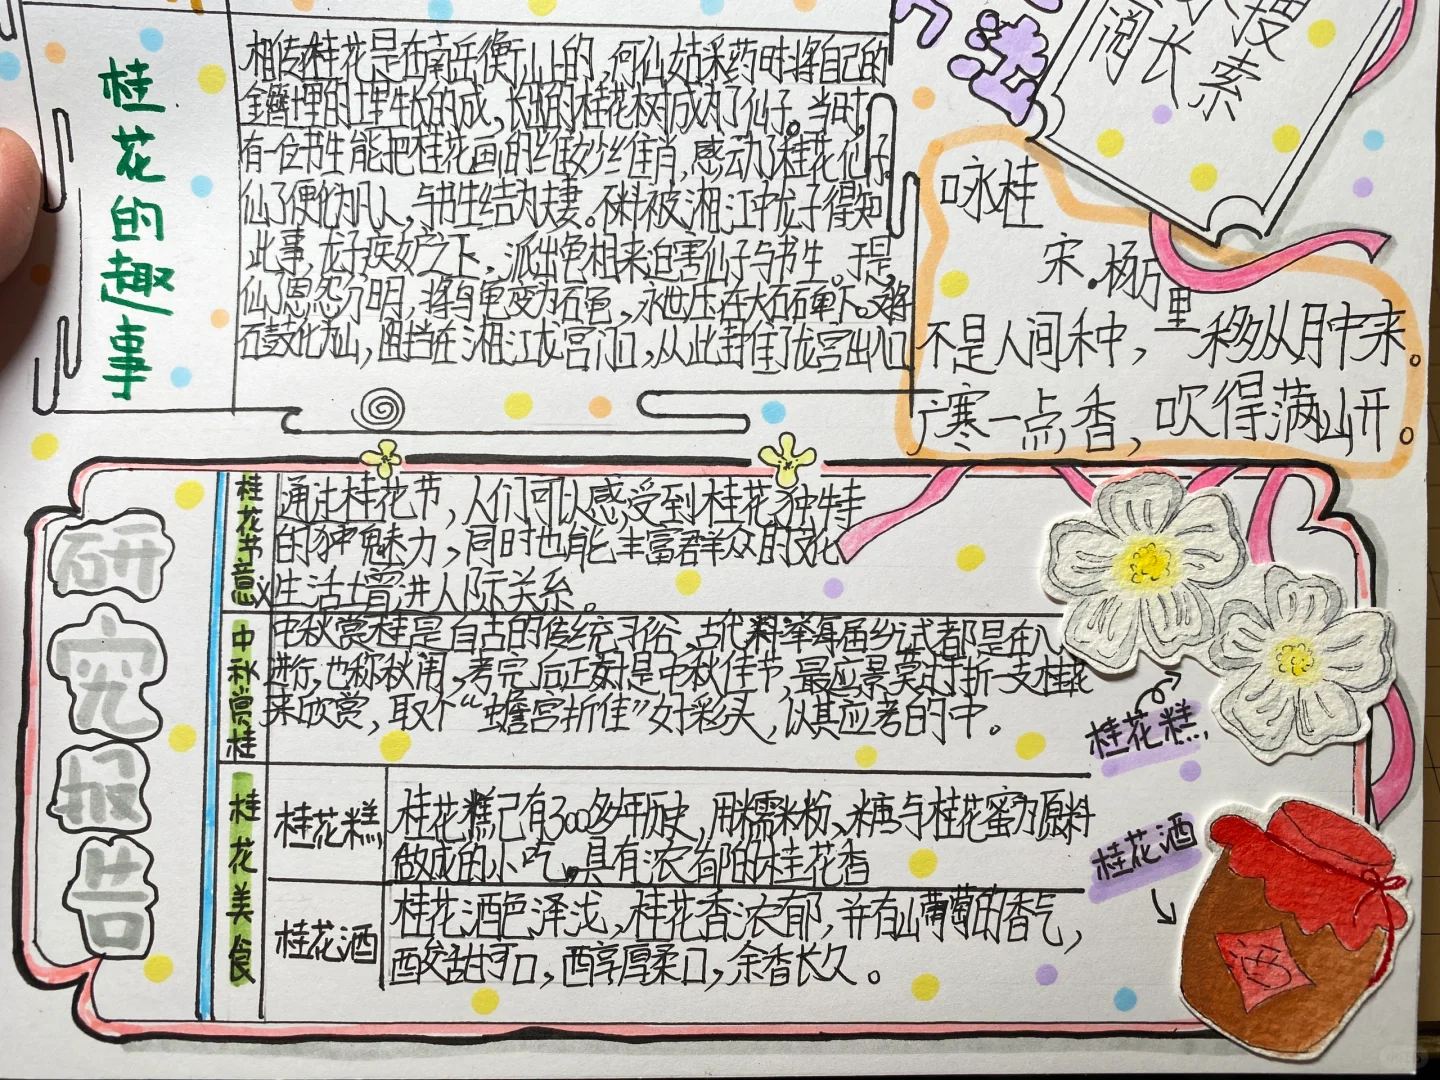 桂花的趣事
相传桂花是在南岳衡山上的,何仙姑采药时将自己的
金簪埋的埋生长的成,长出的桂花树成为了仙子。当时,
有一位书生能把桂花画的维妙维肖,感动了桂花仙子.
仙子便化为凡人,与书生结为夫妻。不料被湘江中龙子得知
此事,龙子疾妒之下,派出色相来迫害仙子与书生。于是,
仙子恩怨分明,将乌龟变为石龟,永世压在大石碑下。又将
石鼓化为山,阻挡在湘江龙宫门口,从此封住了龙宫出入口
法
阅长
搜索
咏桂
宋.杨万里
不是人间种,移从月中来。
广寒一点香,吹得满山开。
研究报告
桂花节意义
通过桂花节,人们可以感受到桂花独特
的独魅力,同时也能丰富群众的文化
生活增进人际关系。
中秋赏桂
中秋赏桂是自古的传统习俗、古代科举每届乡试都是在八
进行,也称秋闱,考完后正好是中秋佳节,最应景莫过于折一支桂花
来欣赏,取个“蟾宫折桂”好彩头,以其应考的中。
桂花美食
桂花糕
桂花糕已有300多年历史,用糯米粉、米唐与桂花蜜为原料
做成的小吃,具有浓郁的桂花香
桂花酒
桂花酒色泽浅,桂花香浓郁,并有山葡萄的香气,
酸甜可口,醇厚柔口,余香长久。
桂花糕
桂花酒
酒